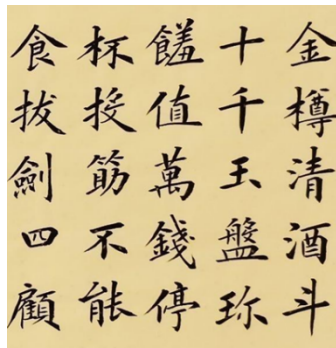 金樽清酒斗
十千玉盤珎
饈值萬錢停
杯投筯不能
食拔劍四顧